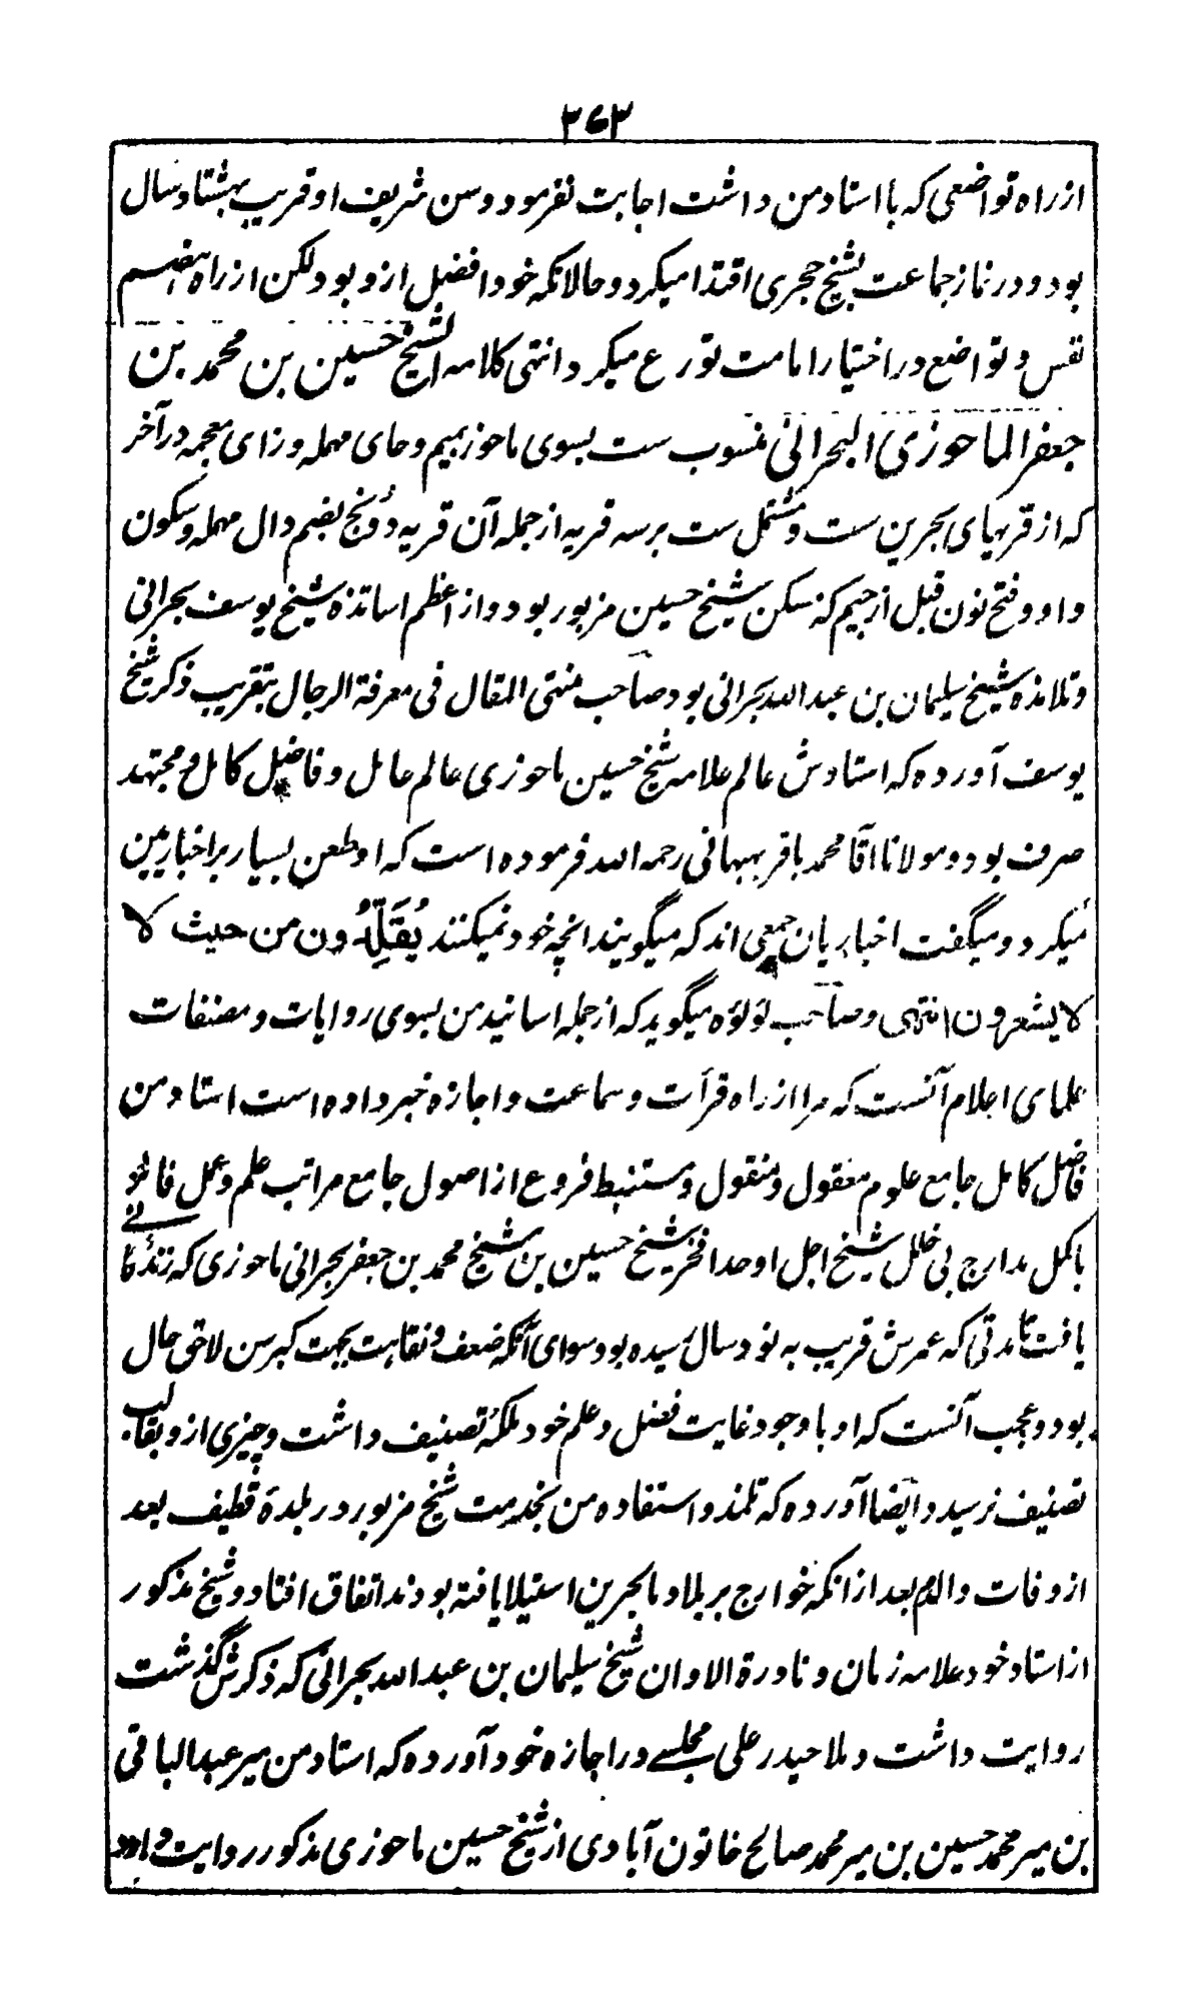 ۲۶۳
از راه تواضعی که با استاد من داشت اجابت نفرمود و سن شریف او قریب بهشتاد سال
بود و در نماز جماعت بشیخ حجری اقتدا میکرد و حالانکه خود افضل ازو بود لکن از راه هضم
نفس و تواضع در اختیار امامت تورع میکرد انتهی کلامه الشیخ حسین بن محمد بن
جعفر الماحوزی البحرانی منسوب ست بسوی ماحوز بمیم و حای مهمله و زای معجمه در آخر
که از قریهای بحرین ست و مشتمل ست بر سه قریه از جمله آن قریه دُونج بضم دال مهمله و سکون
واو و فتح نون قبل از جیم که مسکن شیخ حسین مزبور بود و از اعظم اساتذه شیخ یوسف بحرانی
و تلامذه شیخ سلیمان بن عبد الله بحرانی بود صاحب منتهی المقال فی معرفة الرجال بتقریب ذکر شیخ
یوسف آورده که استادش عالم علامه شیخ حسین ماحوزی عالم عامل و فاضل کامل و مجتهد
صرف بود و مولانا آقا محمد باقر بهبهانی رحمه الله فرموده است که او طعن بسیار بر اخباریین
میکرد و میگفت اخباریان جمعی اند که میگویند انچه خود نمیکنند یُقَلِّدُون من حیث لا
لا یشعرون انتهی و صاحب لؤلؤه میگوید که از جمله اسانید من بسوی روایات و مصنفات
علمای اعلام آنست که مرا از راه قرأت و سماعت و اجازه خبر داده است استاد من
فاضل کامل جامع علوم معقول و منقول و مستنبط فروع از اصول جامع مراتب علم و عمل فائز
باکمل مدارج بی خلل شیخ اجل اوحد افخر شیخ حسین بن شیخ محمد بن جعفر بحرانی ماحوزی که زندگانی
یافت تا مدتی که عمرش قریب به نود سال رسیده بود سوای آنکه ضعف و نقاهت بجهت کبر سن لاحق حال
بود و عجب آنست که او با وجود غایت فضل و علم خود ملکۀ تصنیف داشت و چیزی ازو بقالب
تصنیف نرسید و ایضا آورده که تلمذ و استفاده من بخدمت شیخ مزبور در بلدۀ قطیف بعد
از وفات والدم بعد از انکه خوارج بر بلاد ما بحرین استیلا یافته بودند اتفاق افتاد و شیخ مذکور
از استاد خود علامه زمان و نادرة الاوان شیخ سلیمان بن عبد الله بحرانی که ذکرش گذشت
روایت داشت و ملا حیدر علی مجلسے در اجازه خود آورده که استاد من میر عبد الباقی
بن میر محمد حسین بن میر محمد صالح خاتون آبادی از شیخ حسین ماحوزی مذکور روایت دارد